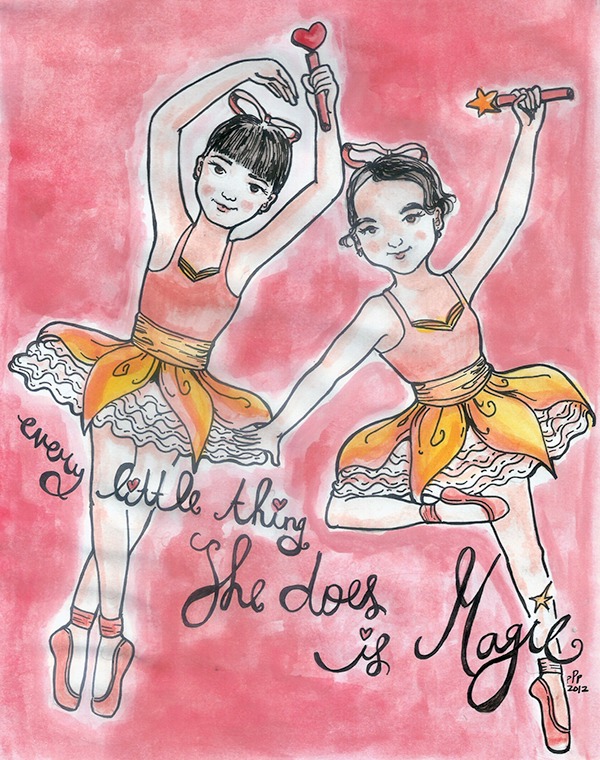 every little thing
She does
is Magic
PPP
2012